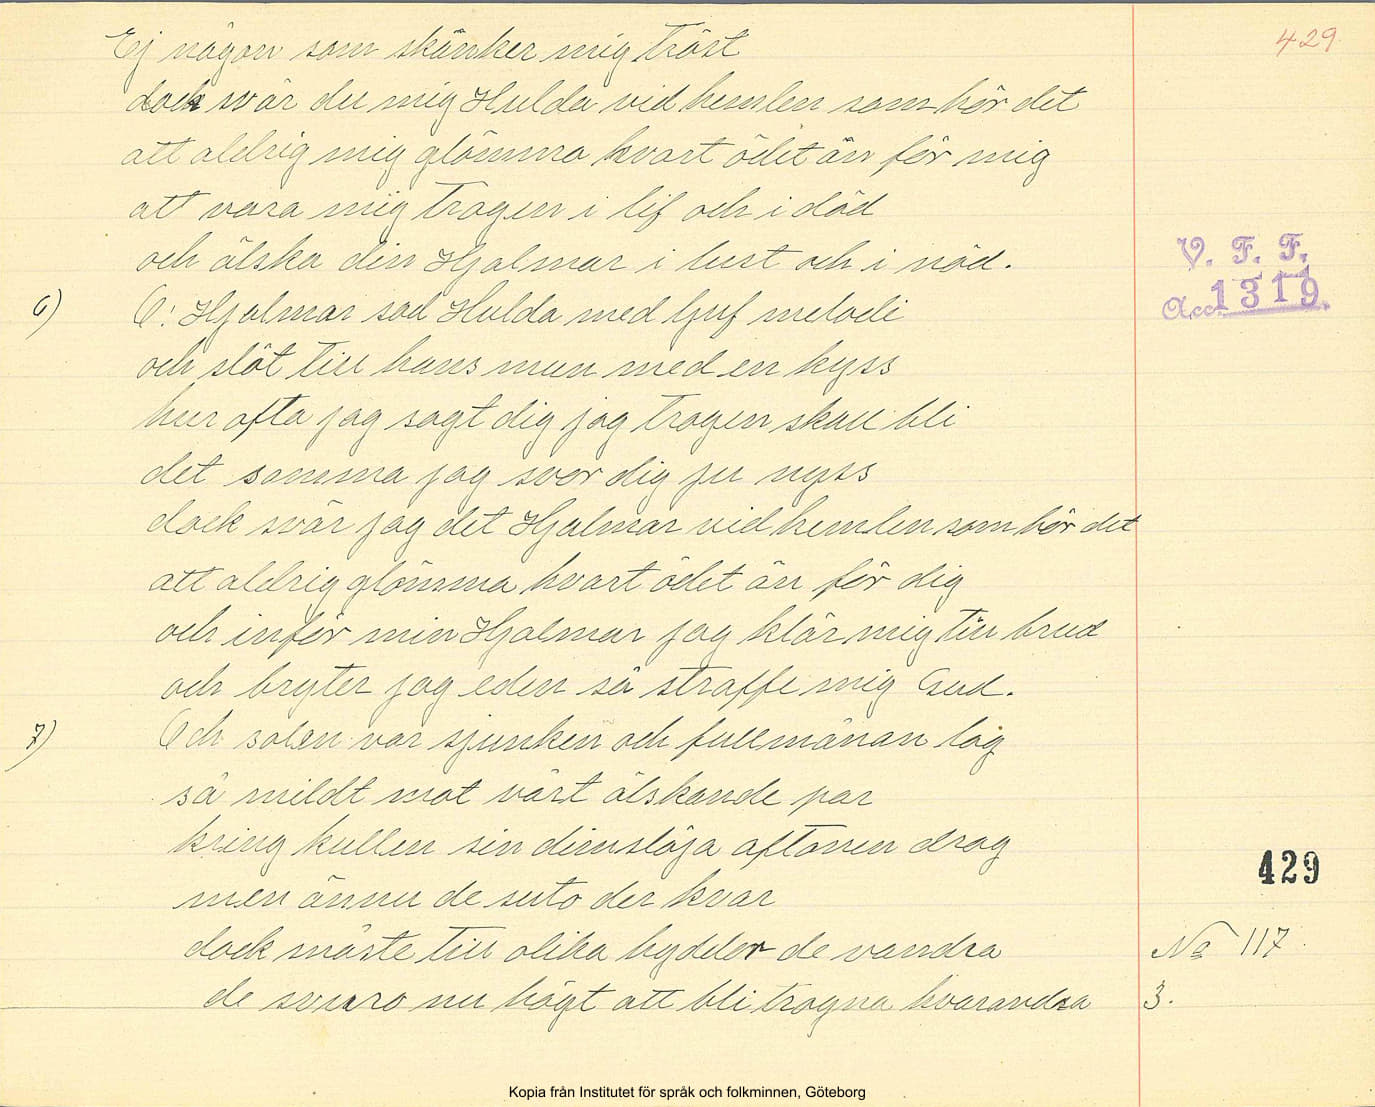 429.
Ej någon som skänker mig tröst
dock svär du mig Hulda vid himlen som hör det
att aldrig mig glömma hvart ödet än för mig
att vara mig trogen i lif och i död
och älska din Hjalmar i lust och i nöd.
V. F. F.
Acc. 1319.
6) O! Hjalmar sad Hulda med ljuf melodi
och slöt till hans mun med en kyss
hur ofta jag sagt dig jag trogen skall bli
det samma jag svor dig ju nyss
dock svär jag det Hjalmar vid himlen som hör det
att aldrig glömma hvart ödet än för dig
och inför min Hjalmar jag klär mig till brud
och bryter jag eden så straffe mig Gud.
7) Och solen var sjunken och fullmånan log
så mildt mot vårt älskande par
kring kullen sin dimslöja aftonen drog
men ännu de suto der kvar
429
dock måste till olika bygder de vandra
No 117
de svuro nu högt att bli trogna hvarandra
3.
Kopia från Institutet för språk och folkminnen, Göteborg